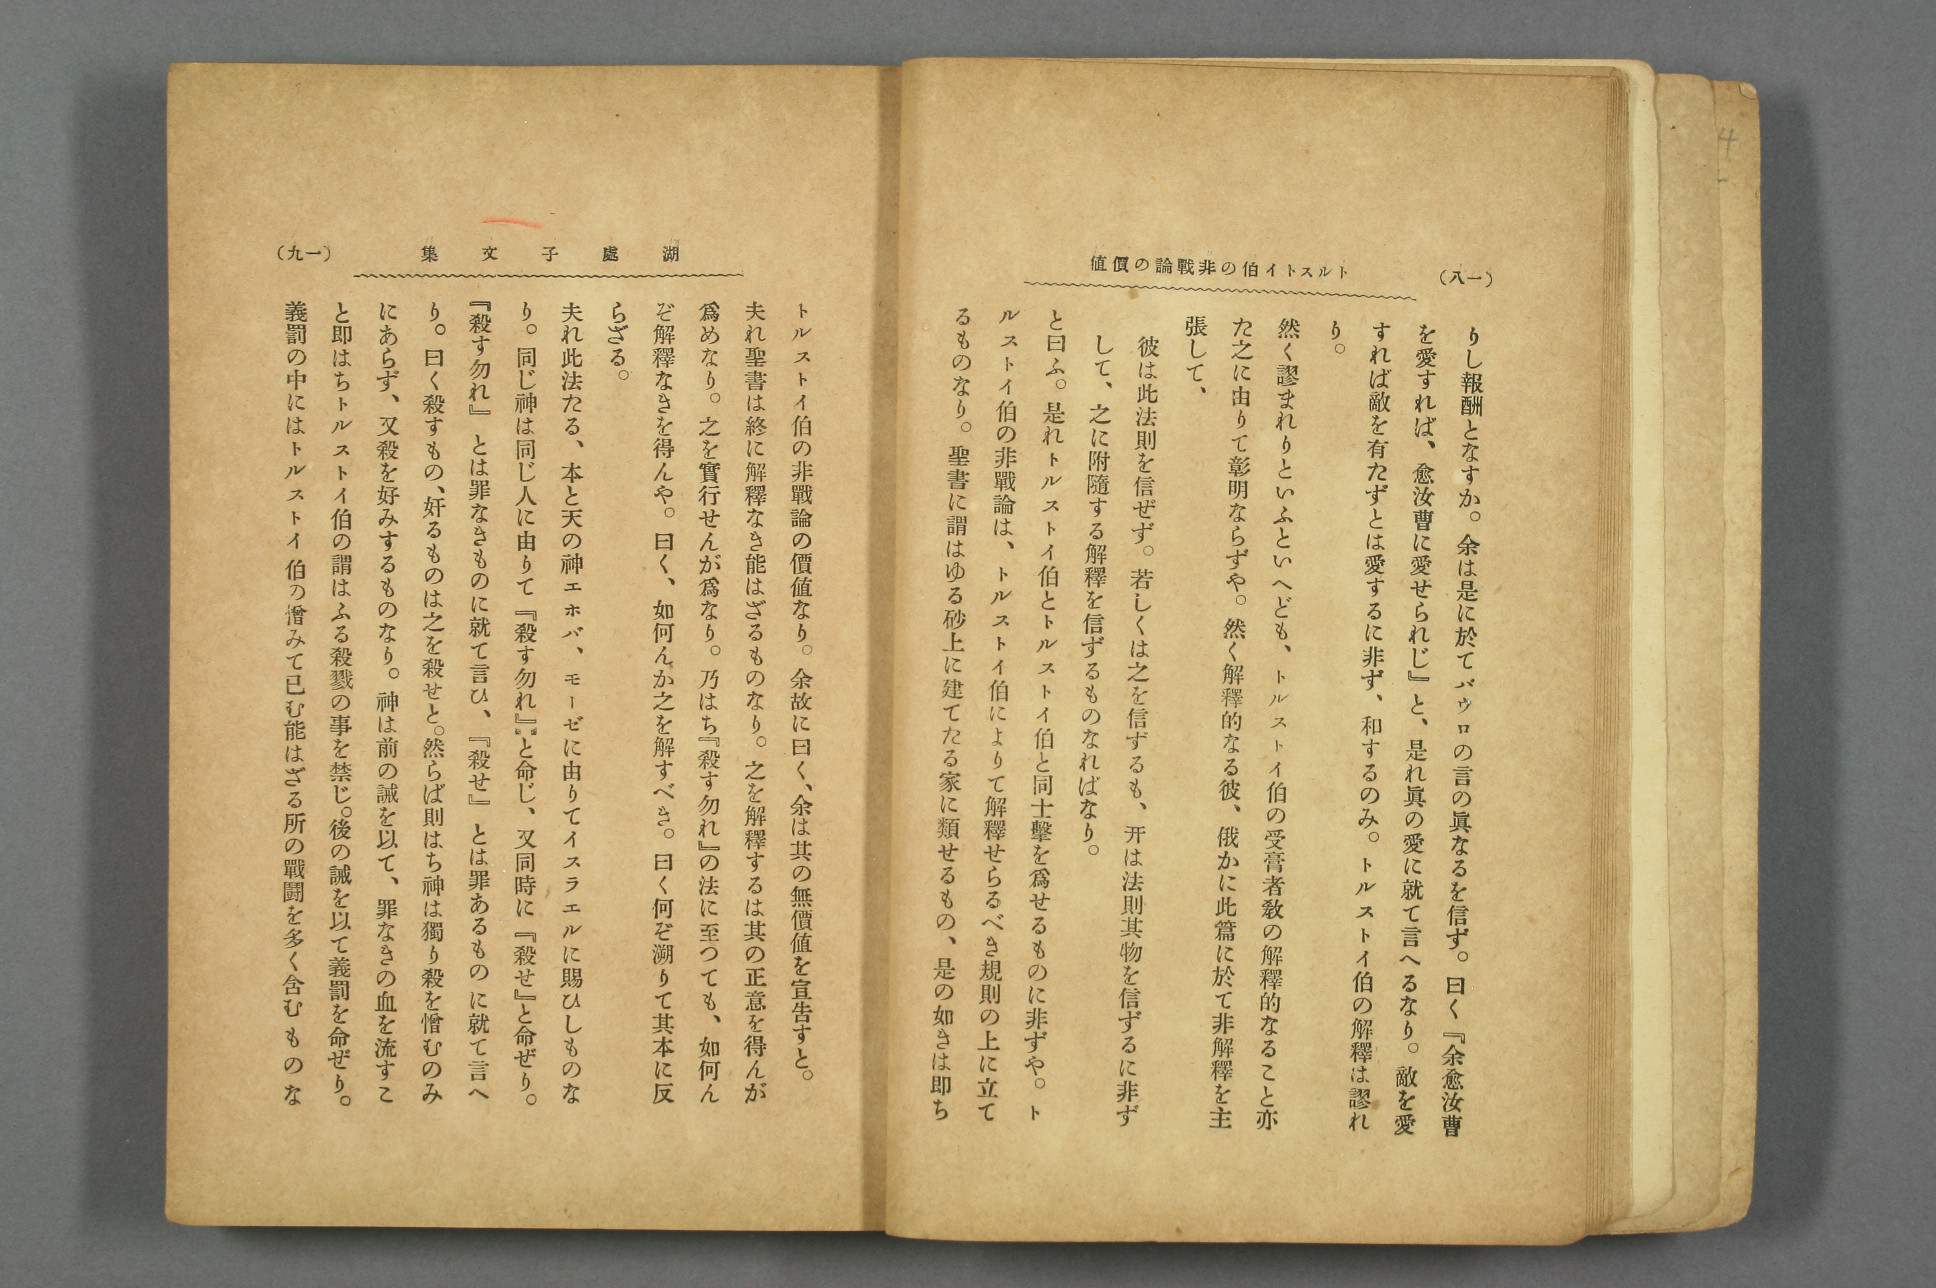 (一八)
トルストイ伯の非戰論の價値
りし報酬となすか。余は是に於てパウロの言の眞なるを信ず。曰く『余愈汝曹
を愛すれば、愈汝曹に愛せられじ』と、是れ眞の愛に就て言へるなり。敵を愛
すれば敵を有たずとは愛するに非ず、和するのみ。トルストイ伯の解釋は謬れ
り。
然く謬まれりといふといへども、トルストイ伯の受膏者敎の解釋的なること亦
た之に由りて彰明ならずや。然く解釋的なる彼、俄かに此篇に於て非解釋を主
張して、
彼は此法則を信ぜず。若しくは之を信ずるも、开は法則其物を信ずるに非ず
して、之に附隨する解釋を信ずるものなればなり。
と曰ふ。是れトルストイ伯とトルストイ伯と同士擊を爲せるものに非ずや。ト
ルストイ伯の非戰論は、トルストイ伯によりて解釋せらるべき規則の上に立て
るものなり。聖書に謂はゆる砂上に建てたる家に類せるもの、是の如きは即ち
湖處子文集
(一九)
トルストイ伯の非戰論の價値なり。余故に曰く、余は其の無價値を宣吿すと。
夫れ聖書は終に解釋なき能はざるものなり。之を解釋するは其の正意を得んが
爲めなり。之を實行せんが爲なり。乃はち『殺す勿れ』の法に至つても、如何ん
ぞ解釋なきを得んや。曰く、如何んか之を解すべき。曰く何ぞ溯りて其本に反
らざる。
夫れ此法たる、本と天の神エホバ、モーゼに由りてイスラエルに賜ひしものな
り。同じ神は同じ人に由りて『殺す勿れ』と命じ、又同時に『殺せ』と命ぜり。
『殺す勿れ』とは罪なきものに就て言ひ、『殺せ』とは罪あるものに就て言へ
り。曰く殺すもの、奸るものは之を殺せと。然らば則はち神は獨り殺を憎むのみ
にあらず、又殺を好みするものなり。神は前の誡を以て、罪なきの血を流すこ
と即はちトルストイ伯の謂はふる殺戮の事を禁じ。後の誡を以て義罰を命ぜり。
義罰の中にはトルストイ伯の憎みて已む能はざる所の戰鬪を多く含むものな